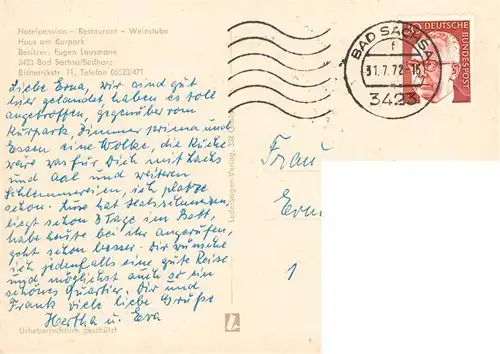 Hotelpension - Restaurant - Weinstube
Haus am Kurpark
Besitzer: Eugen Lausmann
3423 Bad Sachsa/Südharz
Bismarckstr. 11, Telefon 05523/471
Liebe Erna, wir sind gut
hier gelandet haben es toll
angetroffen, gegenüber vom
Kurpark, Zimmer prima und
Essen eine Wolke, die Küche
wäre was für Dich mit Lachs
und Aal und weiteren
Schlemmereien, ich platze
schon. Luse hat
liegt schon 3 Tage im Bett,
habe heute bei ihr angerufen,
geht schon besser. Wir wünsche
ich jedenfalls eine gute Reise
und möglichst auch so ein
schönes Quartier. Dir und
Frank viele liebe Grüße
Hertha u. Eva
Urheberrechtlich geschützt
BAD SACHSA
f
31.7.72-15
3423
DEUTSCHE
BUNDESPOST
Frau
Erna
1